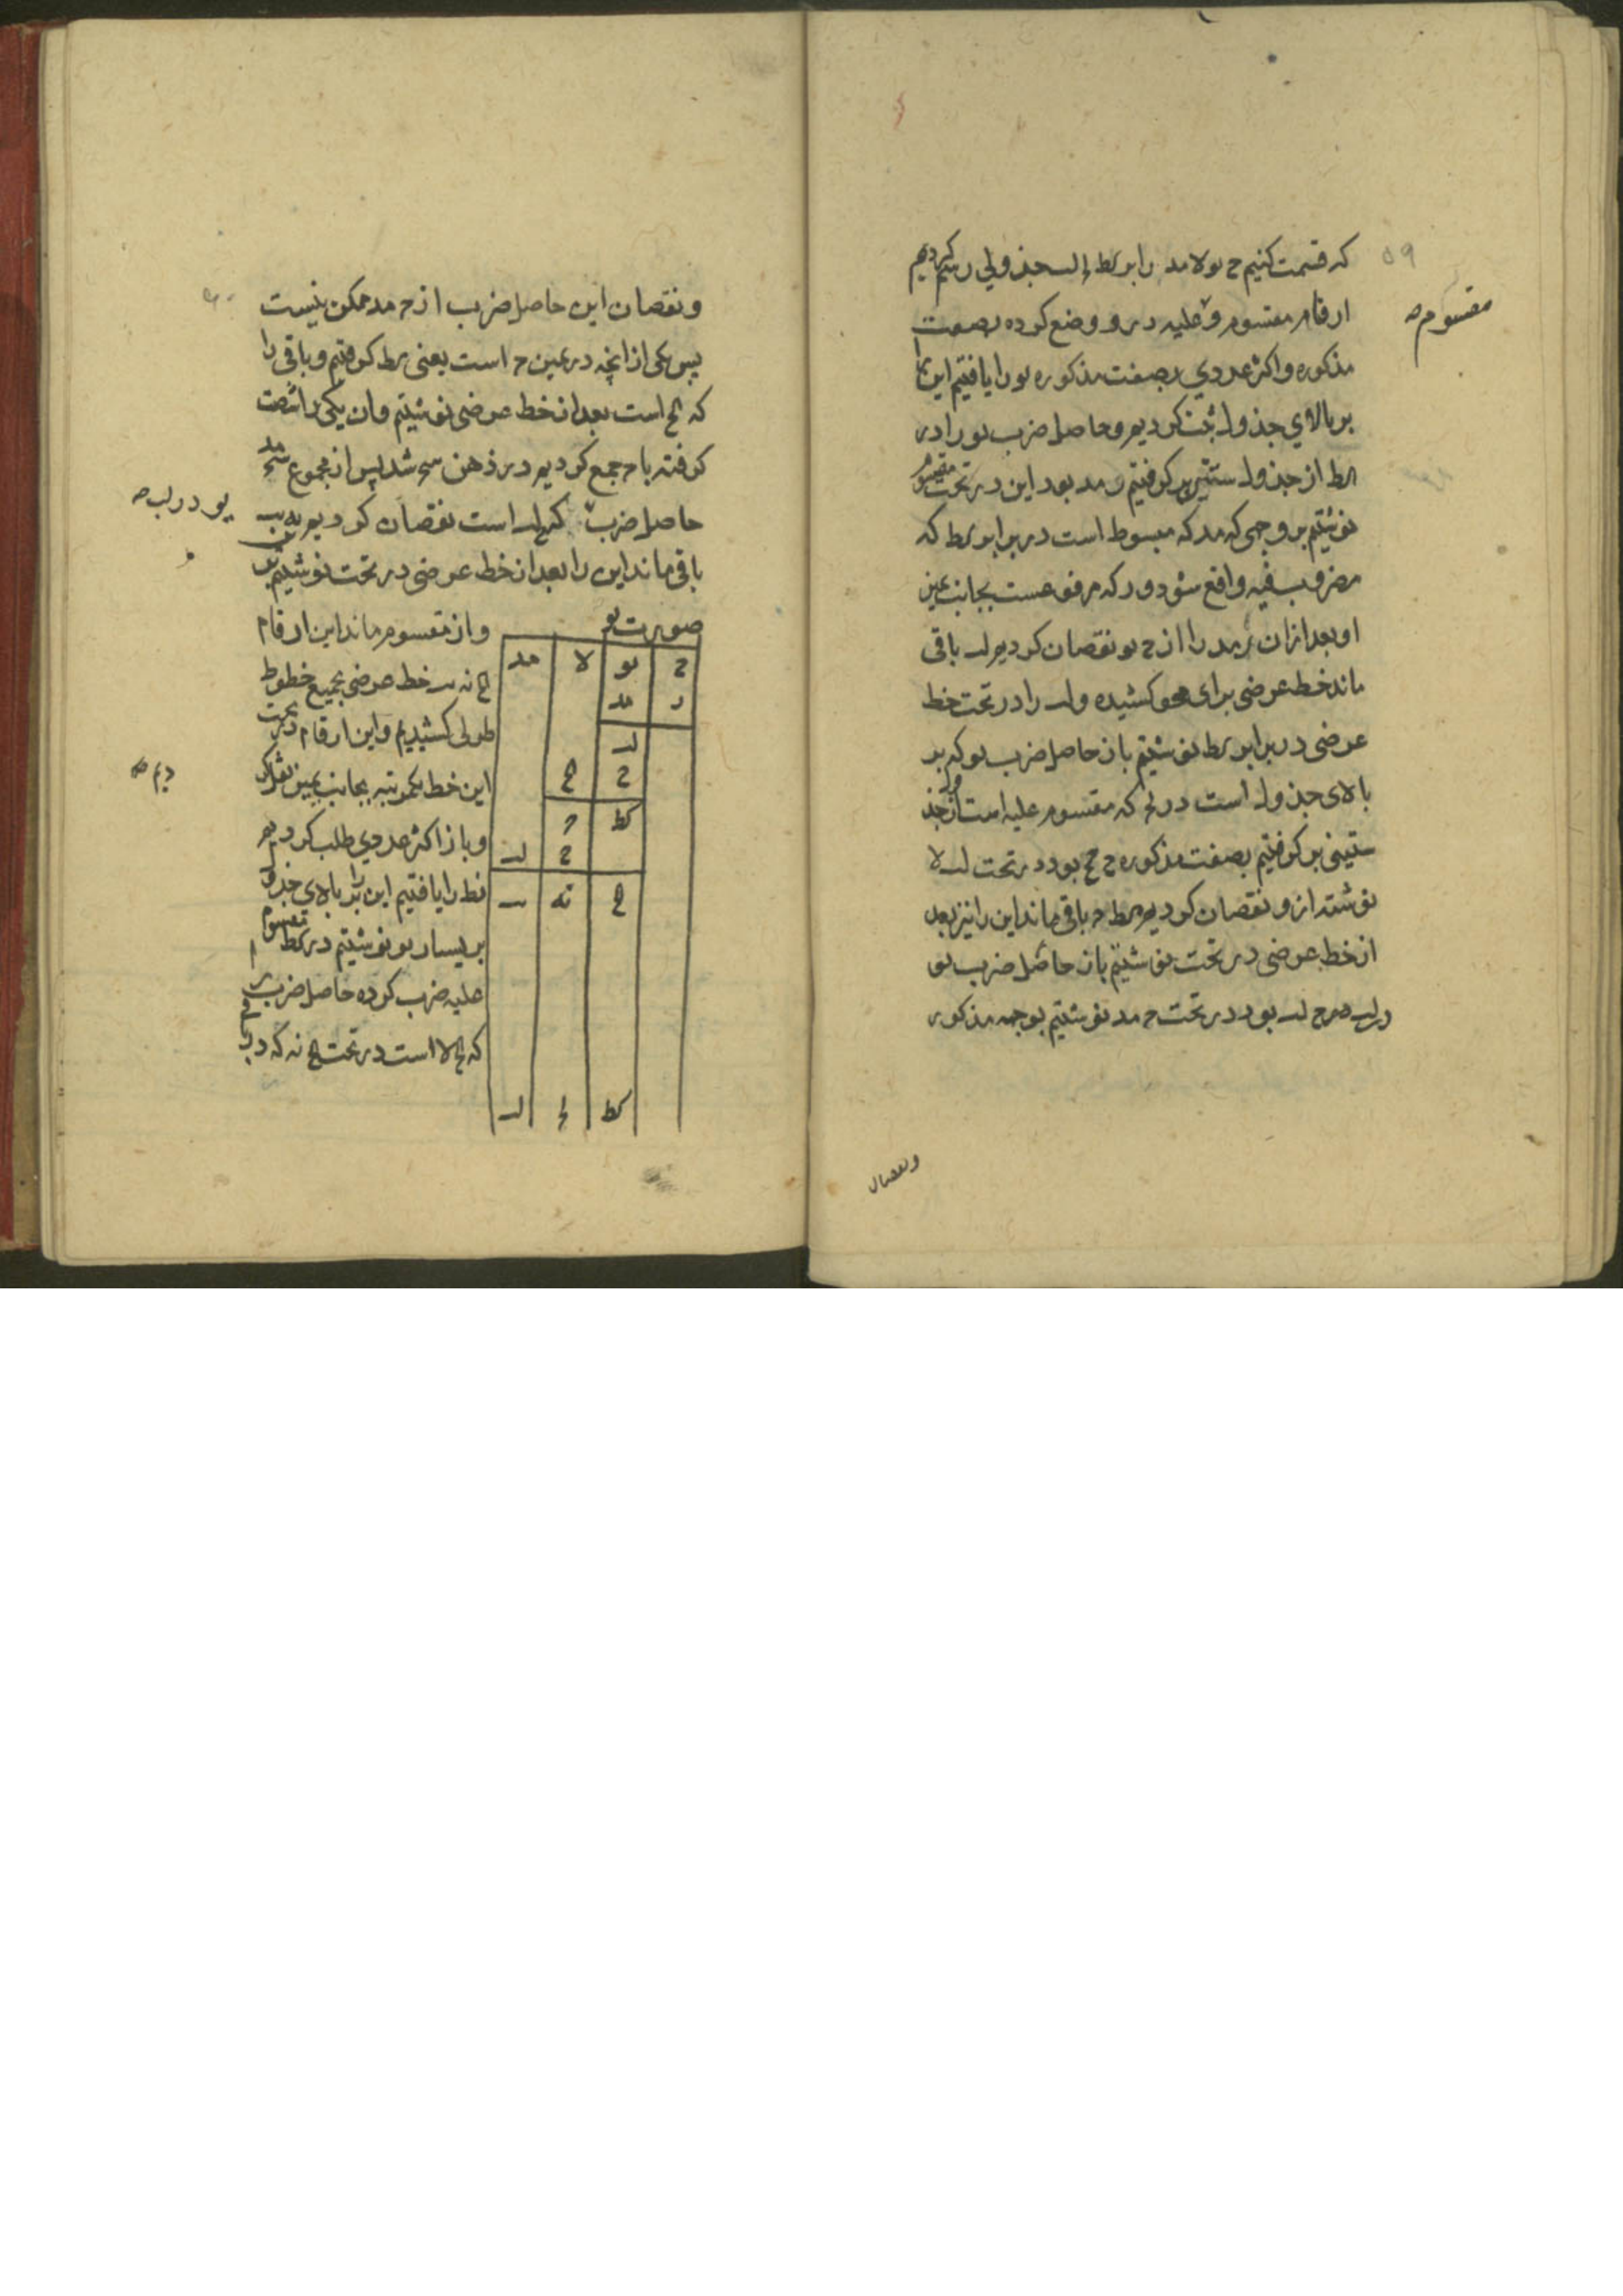 ۵۹
که قسمت کنیم ح نو لا مد را بر کط لح لب جذولی رسم کردیم
ارقام مقسوم و علیه درو وضع کرده بصفت
مقسوم صه
مذکوره واکثر عددی بصفت مذکوره نو را یافتیم این را
بر بالای جذول ثبت کردیم و حاصل ضرب نو را در
کط از جذول ستینی بر کرفتیم ر مد بود این در تحت مقسوم
نوشتیم بر وجهی که مد که مبسوط است در برابر کط که
مضروب فیه واقع شود و ر که مرفوعست بجانب یمین
او بعد ازان ر مد را از ح نو نقصان کردیم لب باقی
ماند خط عرضی برای محو کشیده و لب را در تحت خط
عرضی در برابر کط نوشتیم باز حاصل ضرب نو که بر
بالای جذول است در لح که مقسوم علیه است از جذول
ستینی بر کرفتیم بصفت مذکوره ح ح بود در تحت لب لا
نوشته ازو نقصان کردیم کط ح باقی ماند این را نیز بعد
از خط عرضی در تحت نوشتیم باز حاصل ضرب نو
در لب صرح لب بود در تحت ح مد نوشتیم بوجه مذکور
ونقصان
ونقصان این حاصل ضرب از ح مد ممکن نیست
پس یکی از آنچه در یمین ح است یعنی کط کرفتیم و باقی را
که کح است بعد از خط عرضی نوشتیم وان یکی را شصت
کرفته با ح جمع کردیم در ذهن سح شد پس از مجموع سح مد
حاصل ضرب که ح لب است نقصان کردیم نه یب
یو در لب صه
باقی ماند این را بعد از خط عرضی در تحت نوشتیم بدین
صورت نو
ح نو لا مد
ر مد
لب
ح ح
کط ح
ح لب
کح نه یب
کط لح لب
واز مقسوم ماند این ارقام
کح نه یب خط عرضی بجمیع خطوط
طولی کشیدیم و این ارقام در تحت
این خط بکمرتبه بجانب یمین نقل کر
دیم صه
وباز اکثر عددی طلب کردیم
نط را یافتیم این را بر بالای جذول
بر یسار نو نوشتیم در کط مقسوم
علیه ضرب کرده حاصل ضرب
که کح لا است در تحت کح نه که در